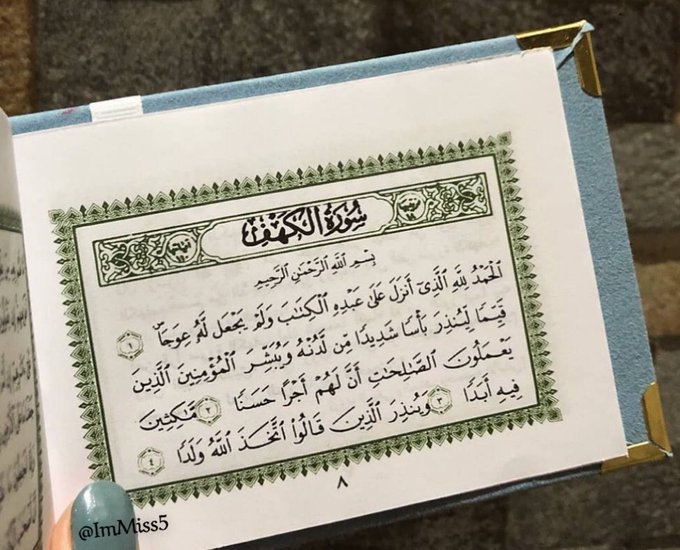 سُورَةُ الكَهْفِ
بِسْمِ ٱللَّهِ ٱلرَّحْمَٰنِ ٱلرَّحِيمِ
ٱلْحَمْدُ لِلَّهِ ٱلَّذِىٓ أَنزَلَ عَلَىٰ عَبْدِهِ ٱلْكِتَٰبَ وَلَمْ يَجْعَل لَّهُۥ عِوَجَا ۜ ١
قَيِّمًا لِّيُنذِرَ بَأْسًا شَدِيدًا مِّن لَّدُنْهُ وَيُبَشِّرَ ٱلْمُؤْمِنِينَ ٱلَّذِينَ
يَعْمَلُونَ ٱلصَّٰلِحَٰتِ أَنَّ لَهُمْ أَجْرًا حَسَنًا ٢ مَّٰكِثِينَ
فِيهِ أَبَدًا ٣ وَيُنذِرَ ٱلَّذِينَ قَالُوا۟ ٱتَّخَذَ ٱللَّهُ وَلَدًا ٤
٨
@ImMiss5